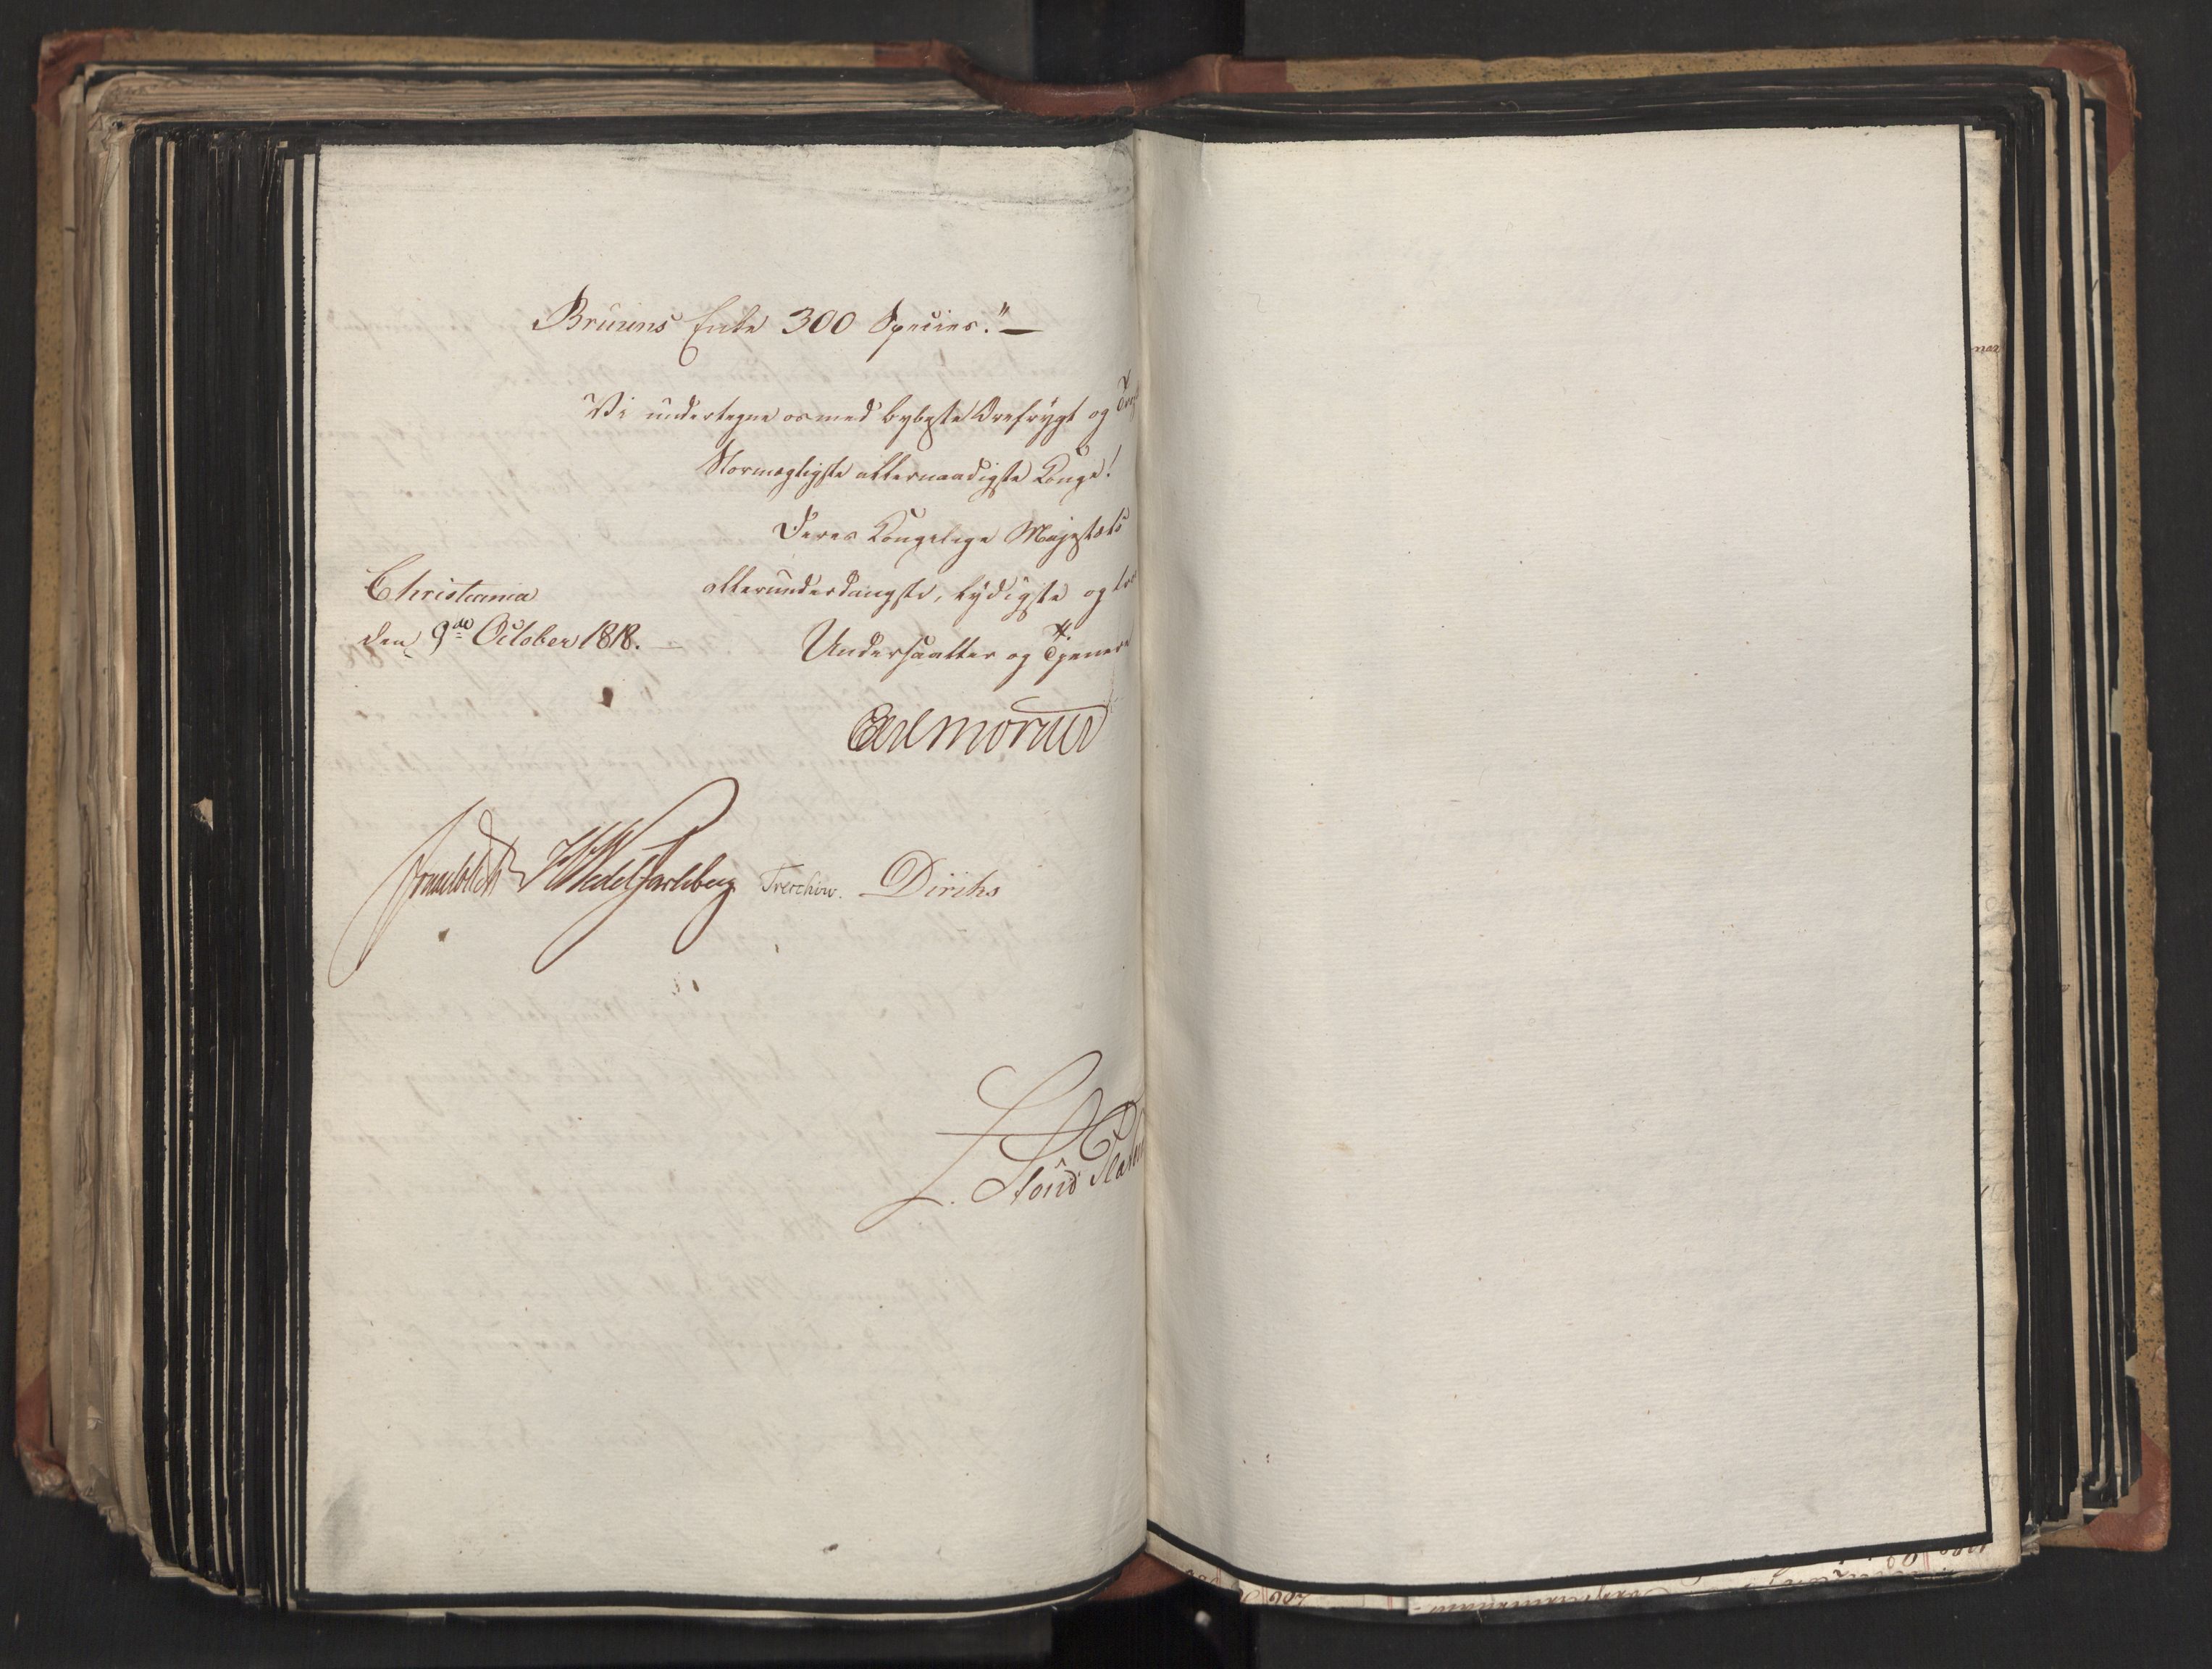 Bruuns Enke 300 Species."—
Vi undertegne os med dybeste Ærefrygt og
Stormægtigste allernaadigste Konge!
Deres Kongelige Majestæts
allerunderdanigste, lydigste og
Christiania
den 9de October 1818.
Undersaatter og Tjenere
Carl Mörner
Sommerhielm HWedel Jarlsberg Treschow. Diriks
L. Stoud Platou